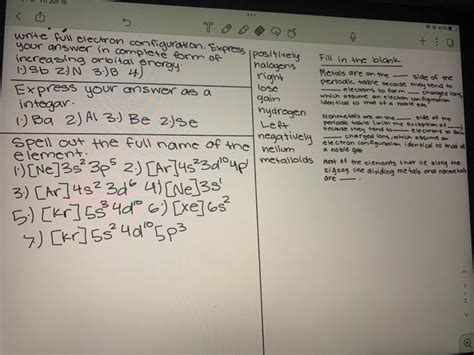 write full electron configuration. Express
your answer in complete form of
increasing orbital energy.
1.) Sb 2.) N 3.) B 4.)
Express your answer as a
integar.
1.) Ba 2.) Al 3.) Be 2.) Se
Spell out the full name of the
element.
1.) [Ne]3s² 3p⁵ 2.) [Ar]4s² 3d¹⁰ 4p¹
3.) [Ar]4s² 3d⁶ 4.) [Ne]3s¹
5.) [Kr]5s² 4d¹⁰ 6.) [Xe]6s²
7.) [Kr]5s² 4d¹⁰ 5p³
positively
halogens
right
lose
gain
hydrogen
Left
negatively
helium
metalloids
Fill in the blank
Metals are on the ___ side of the
periodic table because they tend to
___ electrons to form ___ charged ions,
which assume an electron configuration
identical to that of a noble gas
Nonmetals are on the ___ side of the
periodic table (with the exception of ___
because they tend to ___ electrons to form
___ charged ions, which assume an
electron configuration identical to that of
a noble gas
Most of the elements that lie along the
zigzag line dividing metals and nonmetals
are ___.